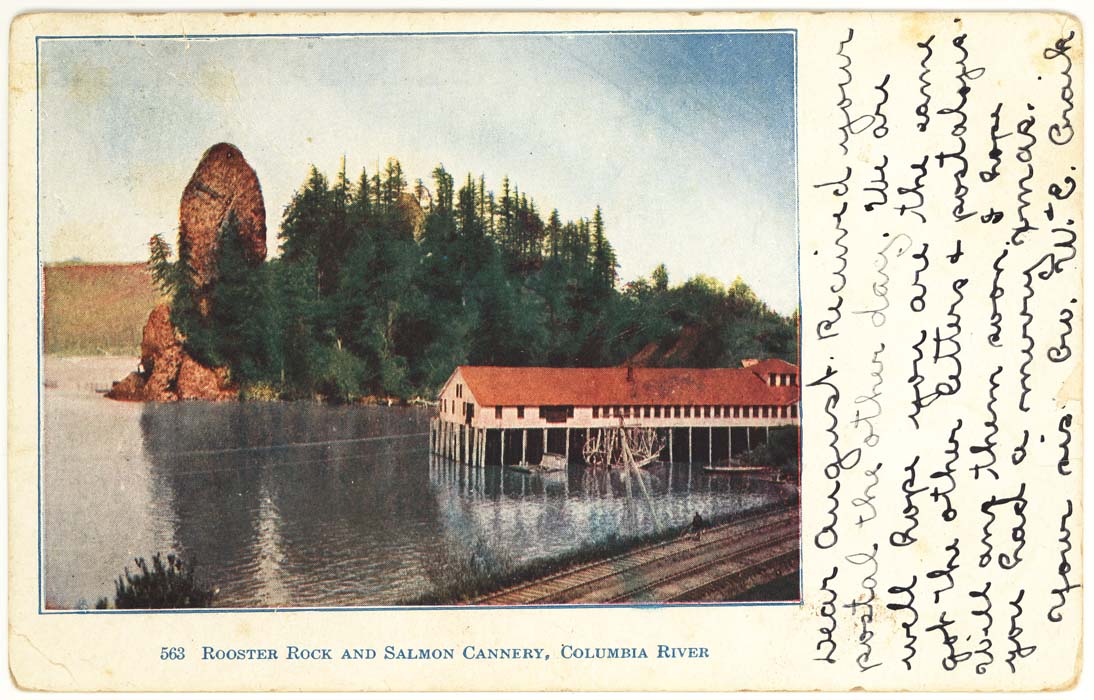 563 ROOSTER ROCK AND SALMON CANNERY, COLUMBIA RIVER
Dear August. Recived your
postal the other day. We are
well hope you are the same
got the other letters + postals
Will ans them soon. I hope
you had a merry xmas.
Your sis. Bro. W. + C. Craik